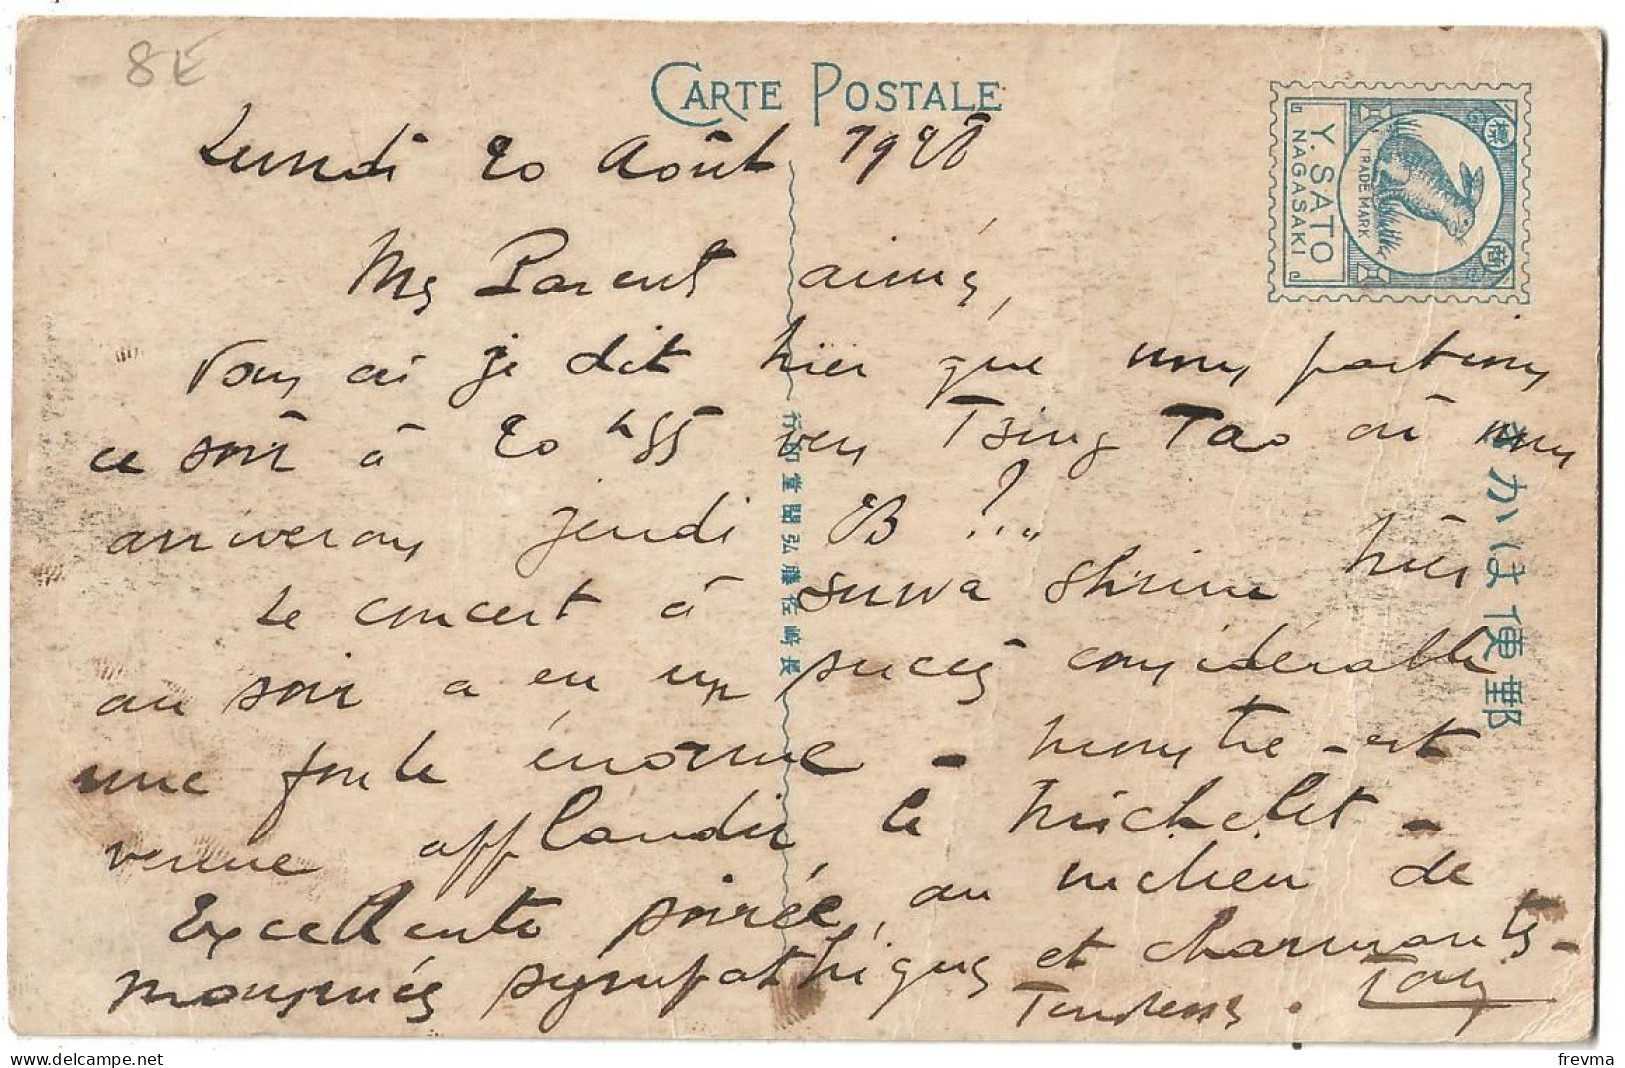 8€
CARTE POSTALE
Y. SATO
NAGASAKI
TRADE MARK
標
商
Lundi 20 Août 1928
Mes Parents aimés,
Vous ai je dit hier que nous partions
ce soir à 20 h 55 vers Tsing Tao où nous
arriverons jeudi 23 !...
Le concert à Suwa Shrine hier
au soir a eu un succès considérable
une foule énorme - monstre - est
venue applaudir le Michelet -
Excellente soirée, au milieu de
mousmés sympathiques et charmants -
Tendresses.
郵便はかき
長崎佐藤弘閣堂印行
frevma